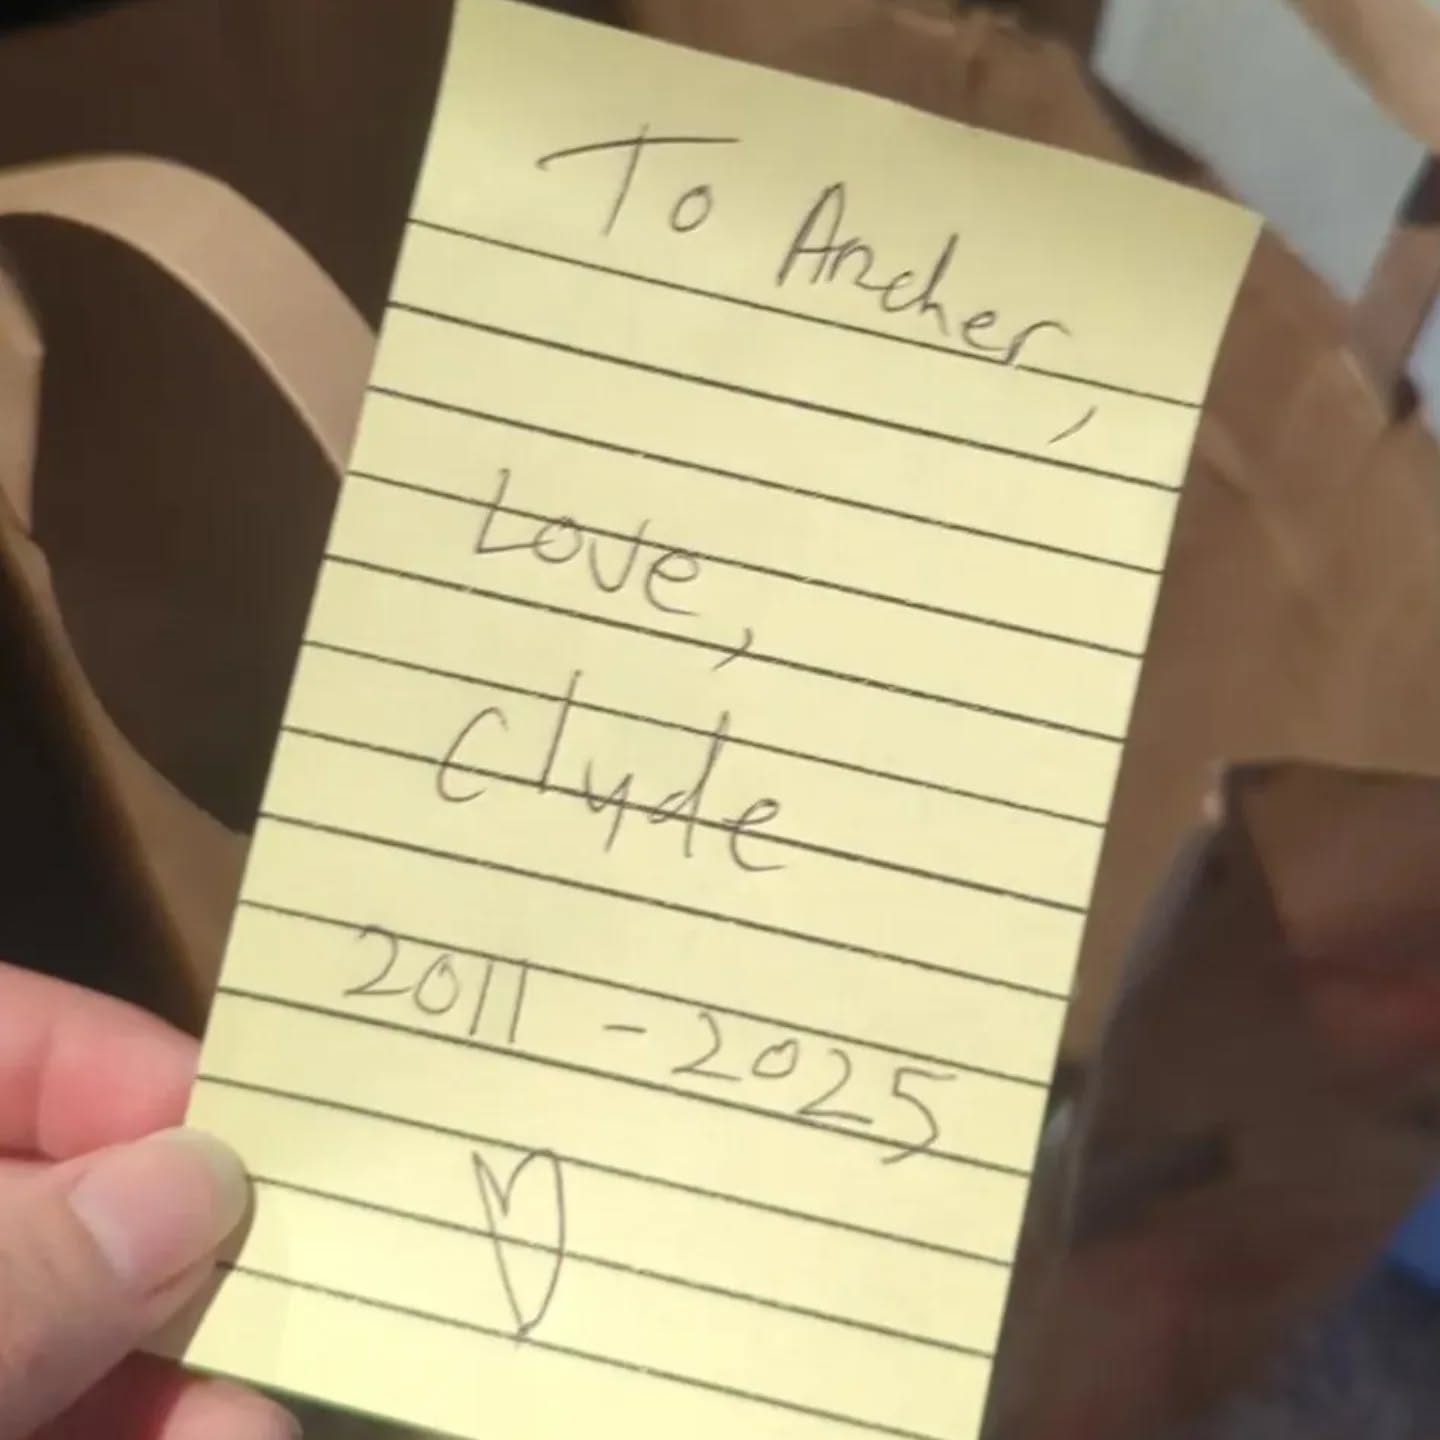 To Archer,
Love,
Clyde
2011 - 2025